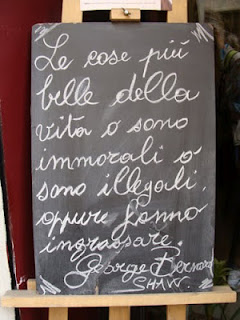 Le cose più
belle della
vita o sono
immorali o
sono illegali,
oppure fanno
ingrassare.
George Bernard
SHAW.